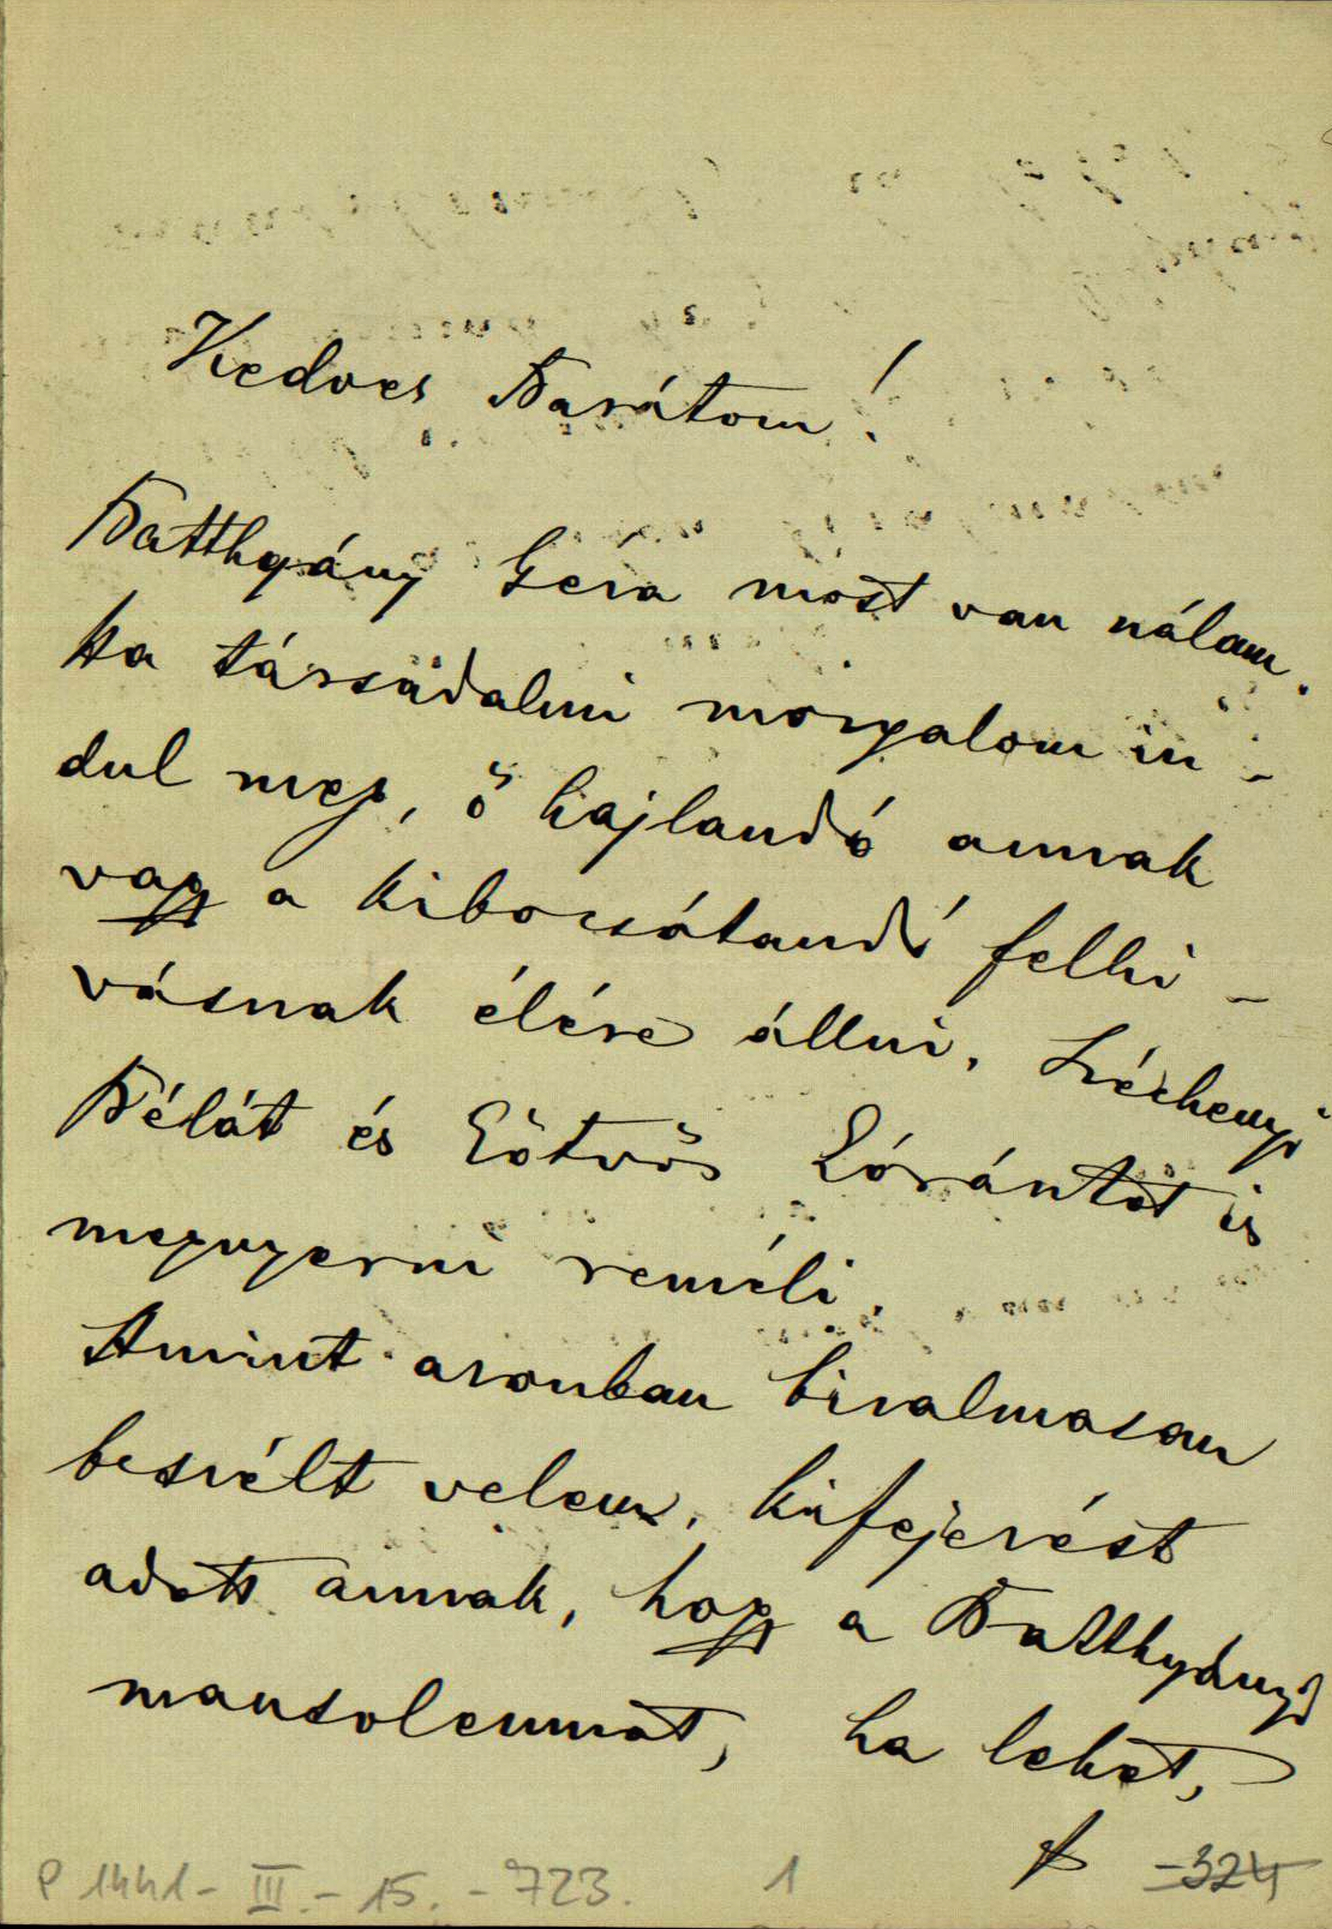 Kedves Barátom!
Batthyány Géza most van nálam.
Ha társadalmi mozgalom in-
dul meg, ő hajlandó annak
vagy a kibocsátandó felhi-
vásnak élére állni. Széchenyi
Bélát és Eötvös Lórántot is
megnyerni reméli.
Amint azonban bizalmasan
beszélt velem, kifejezést
adott annak, hogy a Batthyányi
mausoleumot, ha lehet,
P 1441-III.-15.-723. 1 -324